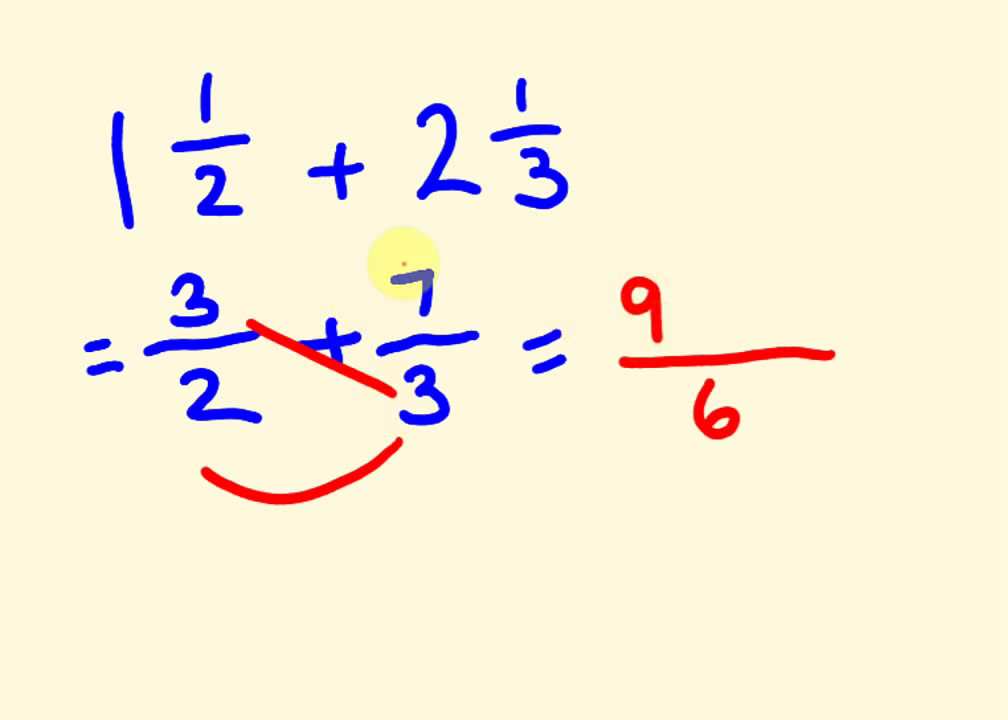 1 1/2 + 2 1/3
= 3/2 + 7/3 = 9/6